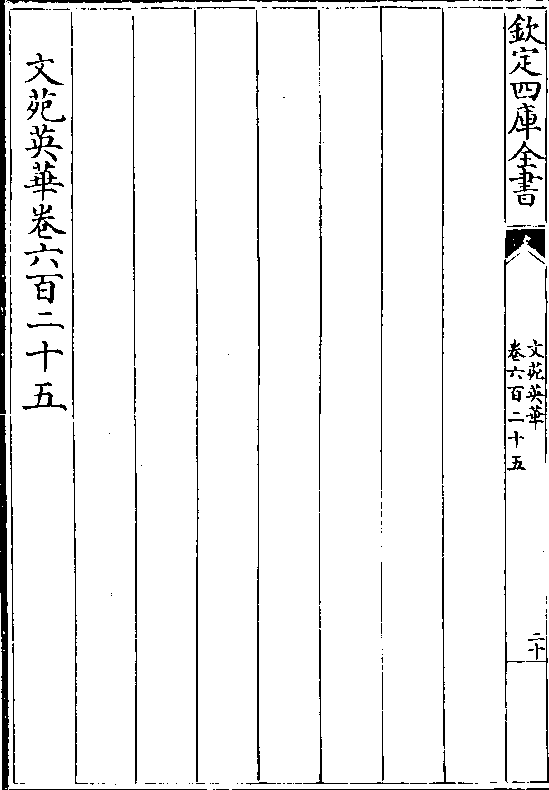 欽定四庫全書
文苑英華
卷六百二十五
二十
文苑英華卷六百二十五